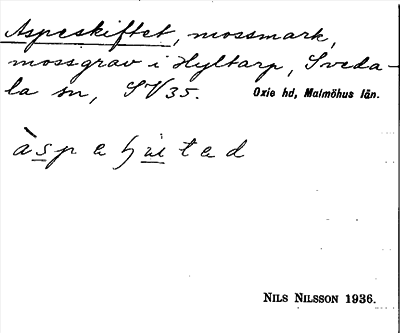 Aspeskiftet, mossmark,
mossgrav i Hyltarp, Sveda-
la sn, SV 35. Oxie hd, Malmöhus län.
NILS NILSSON 1936.